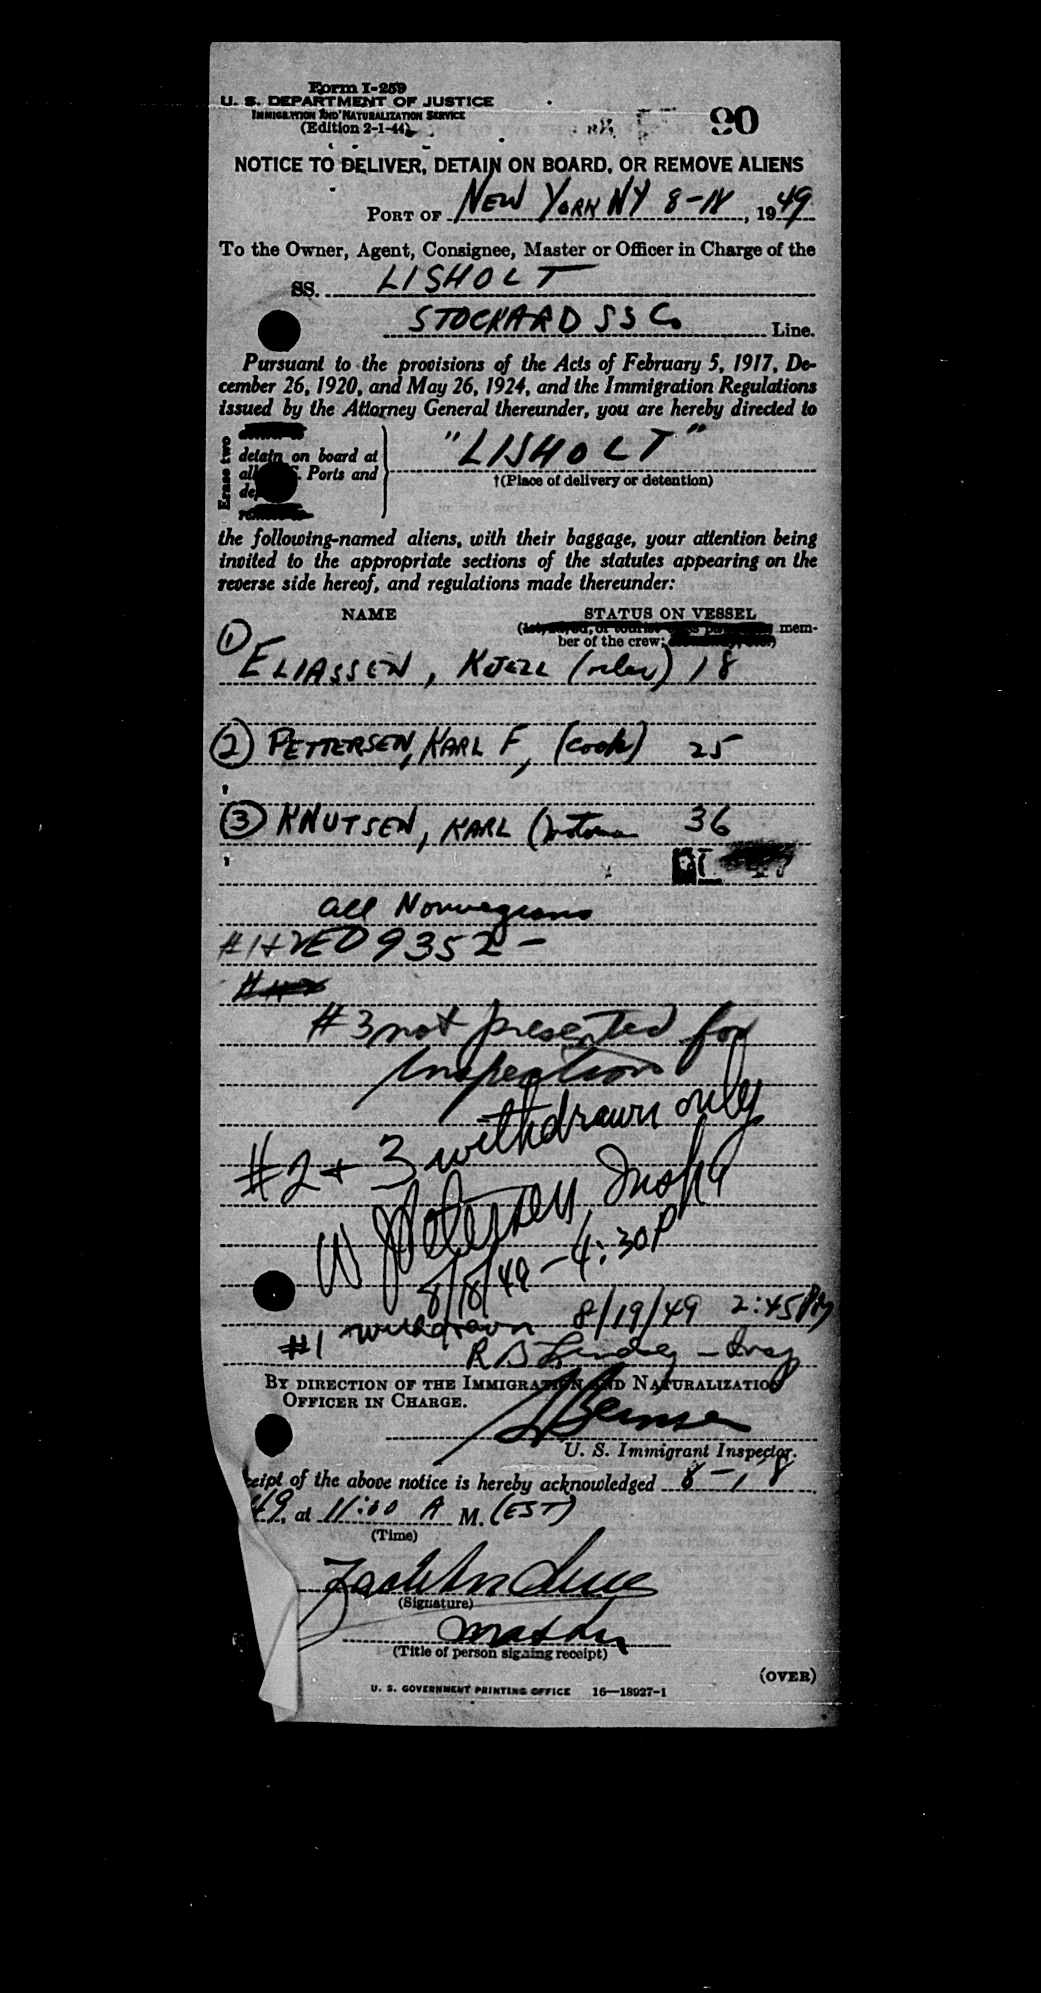 Form I-259
U. S. DEPARTMENT OF JUSTICE
IMMIGRATION AND NATURALIZATION SERVICE
(Edition 2-1-44)
90
NOTICE TO DELIVER, DETAIN ON BOARD, OR REMOVE ALIENS
PORT OF NEW YORK NY 8-18, 1949
To the Owner, Agent, Consignee, Master or Officer in Charge of the
SS. LISHOLT
STOCKARD SS Co Line.
Pursuant to the provisions of the Acts of February 5, 1917, De-
cember 26, 1920, and May 26, 1924, and the Immigration Regulations
issued by the Attorney General thereunder, you are hereby directed to
Erase two
detain on board at
all Ports and
"LISHOLT"
†(Place of delivery or detention)
the following-named aliens, with their baggage, your attention being
invited to the appropriate sections of the statutes appearing on the
reverse side hereof, and regulations made thereunder:
NAME STATUS ON VESSEL
mem-
ber of the crew;
① ELIASSEN, KJELL 18
② PETTERSEN, KARL F, (cook) 25
③ KNUTSEN, KARL 36
all Norwegians
#1+2 ED 9352 -
#3 not presented for
Inspection
#2 + 3 withdrawn only
W Petersen Insp
8/18/49 - 4:30P
#1 withdrawn 8/19/49 2:45PM
R B - Insp
BY DIRECTION OF THE IMMIGRATION AND NATURALIZATION
OFFICER IN CHARGE.
U. S. Immigrant Inspector.
eipt of the above notice is hereby acknowledged 8-18
49, at 11:00 A M. (EST)
(Time)
(Signature)
Master
(Title of person signing receipt)
(OVER)
U. S. GOVERNMENT PRINTING OFFICE 16—18927-1